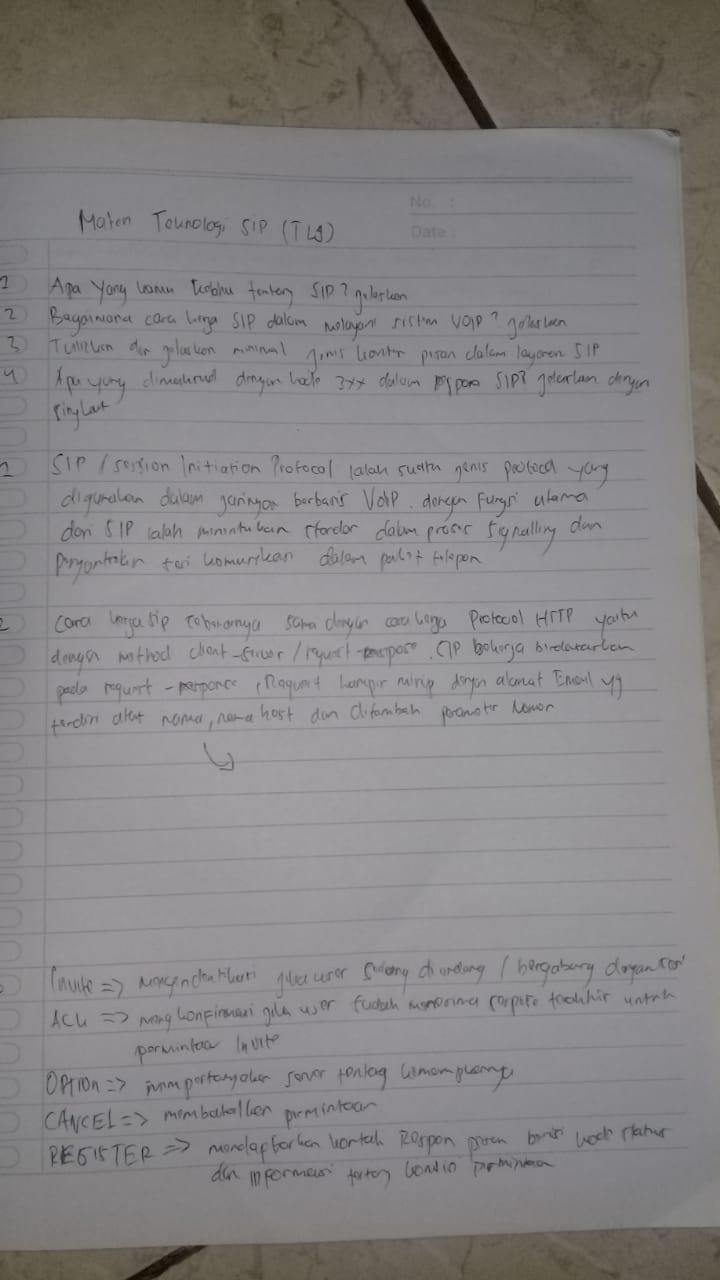 No. :
Materi Teknologi SIP (TLJ)
Date :
1 Apa Yang kamu ketahui tentang SIP? jelaskan
2 Bagaimana cara kerja SIP dalam melayani sistem VOIP? jelaskan
3 Tuliskan dan jelaskan minimal jenis kontir pesan dalam layanan SIP
4 Apa yang dimaksud dengan kode 3xx dalam respons SIP? jelaskan dengan
singkat
1 SIP / Session Initiation Protocol ialah suatu jenis protocol yang
digunakan dalam jaringan berbasis VoIP. dengan fungsi utama
dari SIP ialah menentukan standar dalam proses Signalling dan
Pengontrolan sesi komunikasi dalam paket telepon
2 Cara kerja Sip sebenarnya sama dengan cara kerja Protocol HTTP yaitu
dengan method client-server / request-respose. SIP bekerja berdasarkan
pada request - responce, Request hampir mirip dengan alamat Email yg
terdiri atas nama, nama host dan ditambah parameter Nomor
Invite => Mengindentikasi jika user sedang di undang / bergabung dengan sesi
ACK => mengkonfirmasi jika user sudah menerima respose terakhir untuk
permintaa Invite
OPTION => mempertanyakan server tentang kemampuannya
CANCEL => membatalkan permintaan
REGISTER => mendaptarkan kontak Respon pesan berisi kode status
dan informasi tentang kondisi permintaan